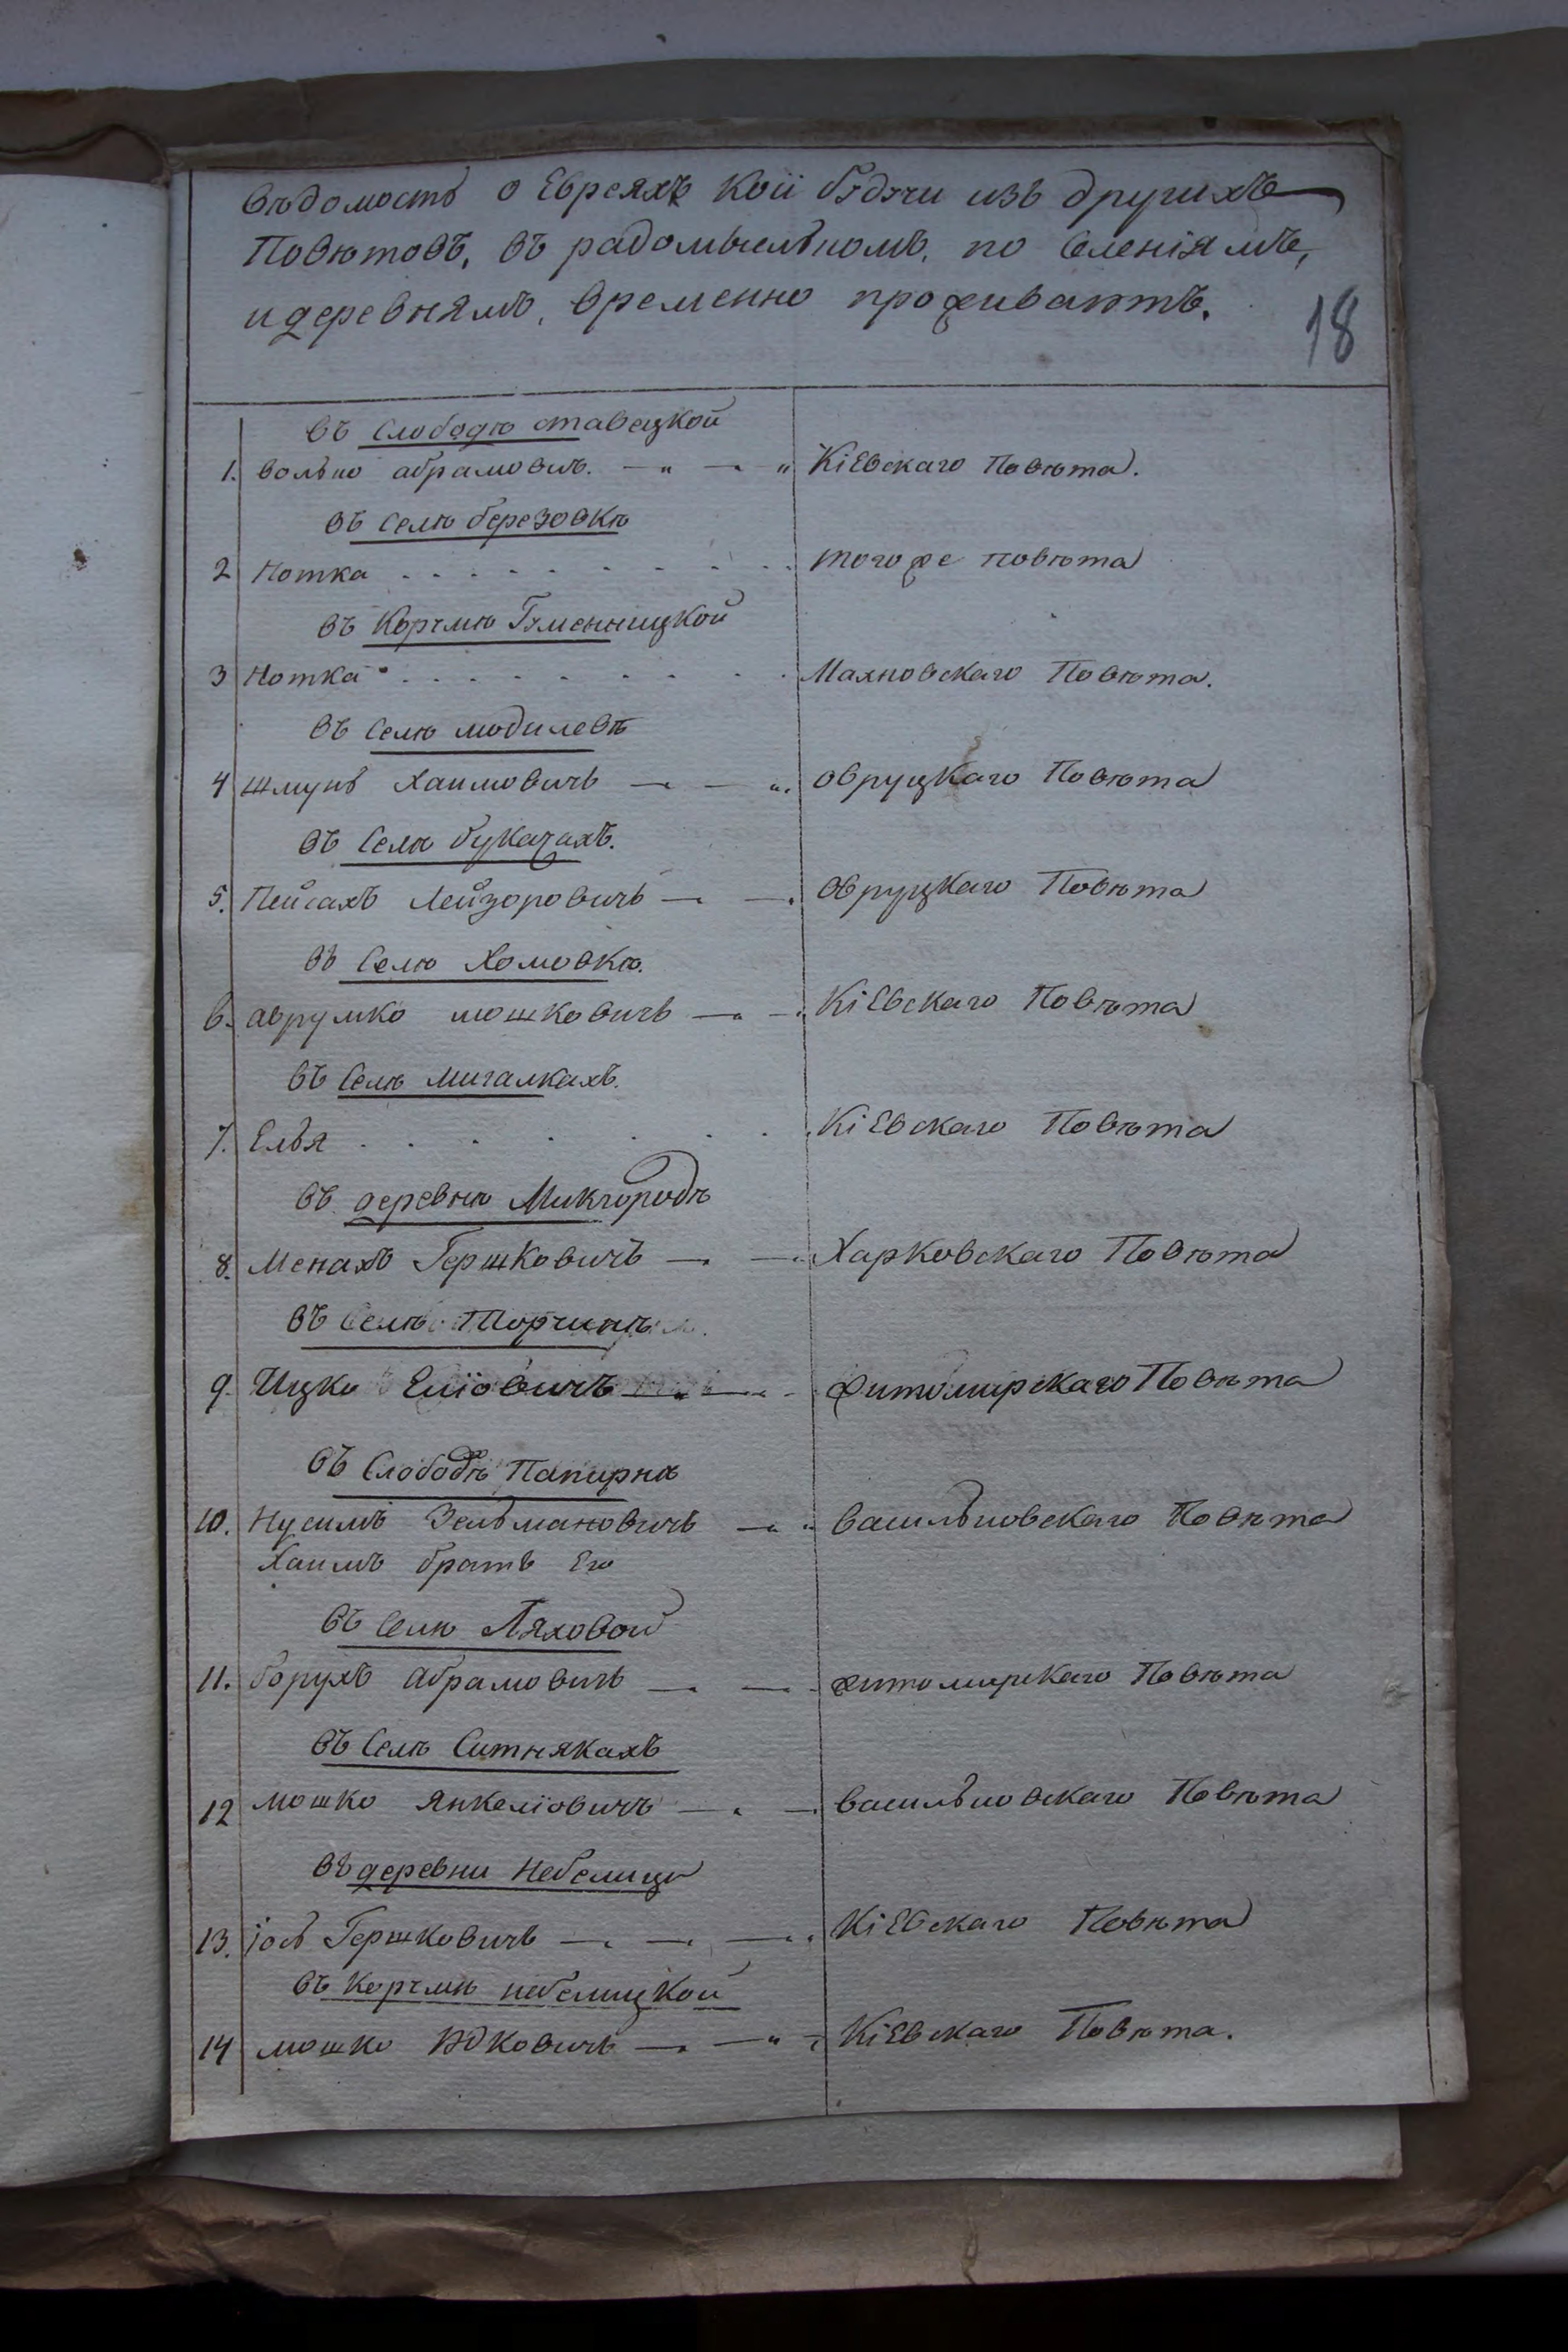 Вѣдомость о Евреяхъ кои будучи изъ другихъ
Повѣтовъ, въ радомысльномъ, по Селеніямъ,
и деревнямъ, временно проживаютъ.
18
въ Слободѣ ставецкой
1. волько абрамовичъ. Кіевскаго Повѣта.
въ Селѣ березовкѣ
2 Нотка тогоже повѣта
въ Корчмѣ Гуменницкой
3 Нотка Махновскаго Повѣта.
въ Селѣ могилевѣ
4 Шмуль Хаимовичъ овруцкаго Повѣта
въ Селѣ букачахъ.
5. Пейсахъ Лейзоровичъ Овруцкаго Повѣта
въ Селѣ Хомовкѣ.
6. аврумко мошковичъ Кіевскаго Повѣта
въ Селѣ мигалкахъ.
7. Елья Кіевскаго Повѣта
въ деревнѣ Микгородѣ
8. Менахъ Гершковичъ Харковскаго Повѣта
въ Селѣ Торчинѣ
9. Ицко Еліовичъ Житомирскаго Повѣта
въ Слободѣ Папирнѣ
10. Нусимъ Зельмановичъ васильковскаго Повѣта
Хаимъ братъ Его
въ Селѣ Ляховой
11. борухъ абрамовичъ житомирскаго Повѣта
въ Селѣ Ситнякахъ
12 мошко Янкеліовичъ васильковскаго Повѣта
въ деревни Небелицы
13. іось Гершковичъ Кіевскаго Повѣта
въ Корчмѣ небелицкой
14 мошко Юдковичъ Кіевскаго Повѣта.